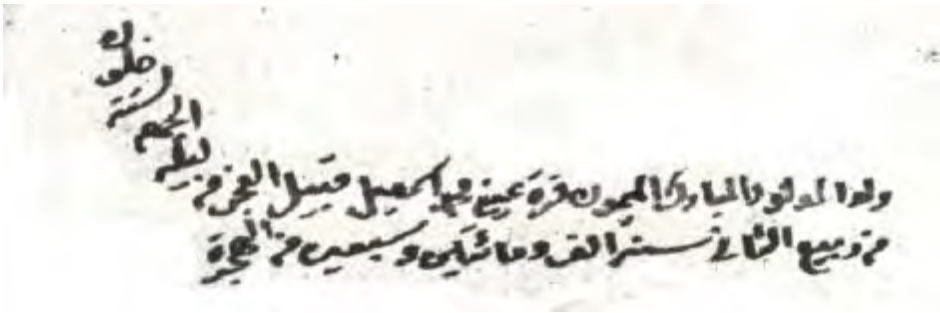 ولد المولود المبارك الميمون قرة عيني محمد اسمعيل قبيل الفجر من ليلة الجمعة لستة خلون
من ربيع الثاني سنة الف ومائتين وسبعين من الهجرة